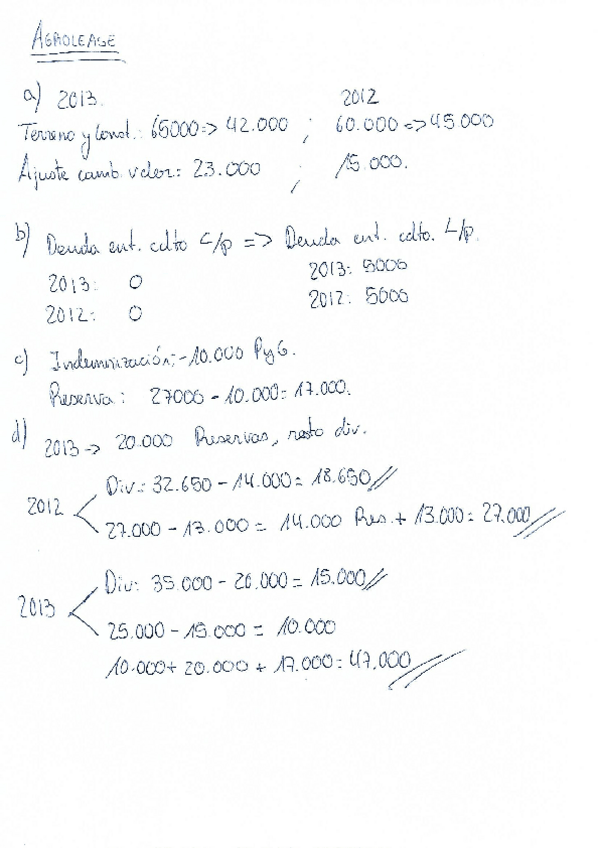 AGROLEASE
a) 2013. 2012
Terreno y Const.: 65000=> 42.000 ; 60.000=>45.000
Ajuste camb. valor: 23.000 ; 15.000.
b) Deuda ent. cdto C/p => Deuda ent. cdto. L/p.
2013: 0 2013: 5000
2012: 0 2012: 5000
c) Indemnización; -10.000 PyG.
Reserva: 27000 - 10.000= 17.000.
d) 2013-> 20.000 Reservas, resto div.
Div.: 32.650 - 14.000= 18.650
2012
27.000 - 13.000 = 14.000 Res. + 13.000= 27.000
Div: 35.000 - 20.000= 15.000
2013
25.000 - 15.000 = 10.000
10.000+ 20.000 + 17.000= 47.000